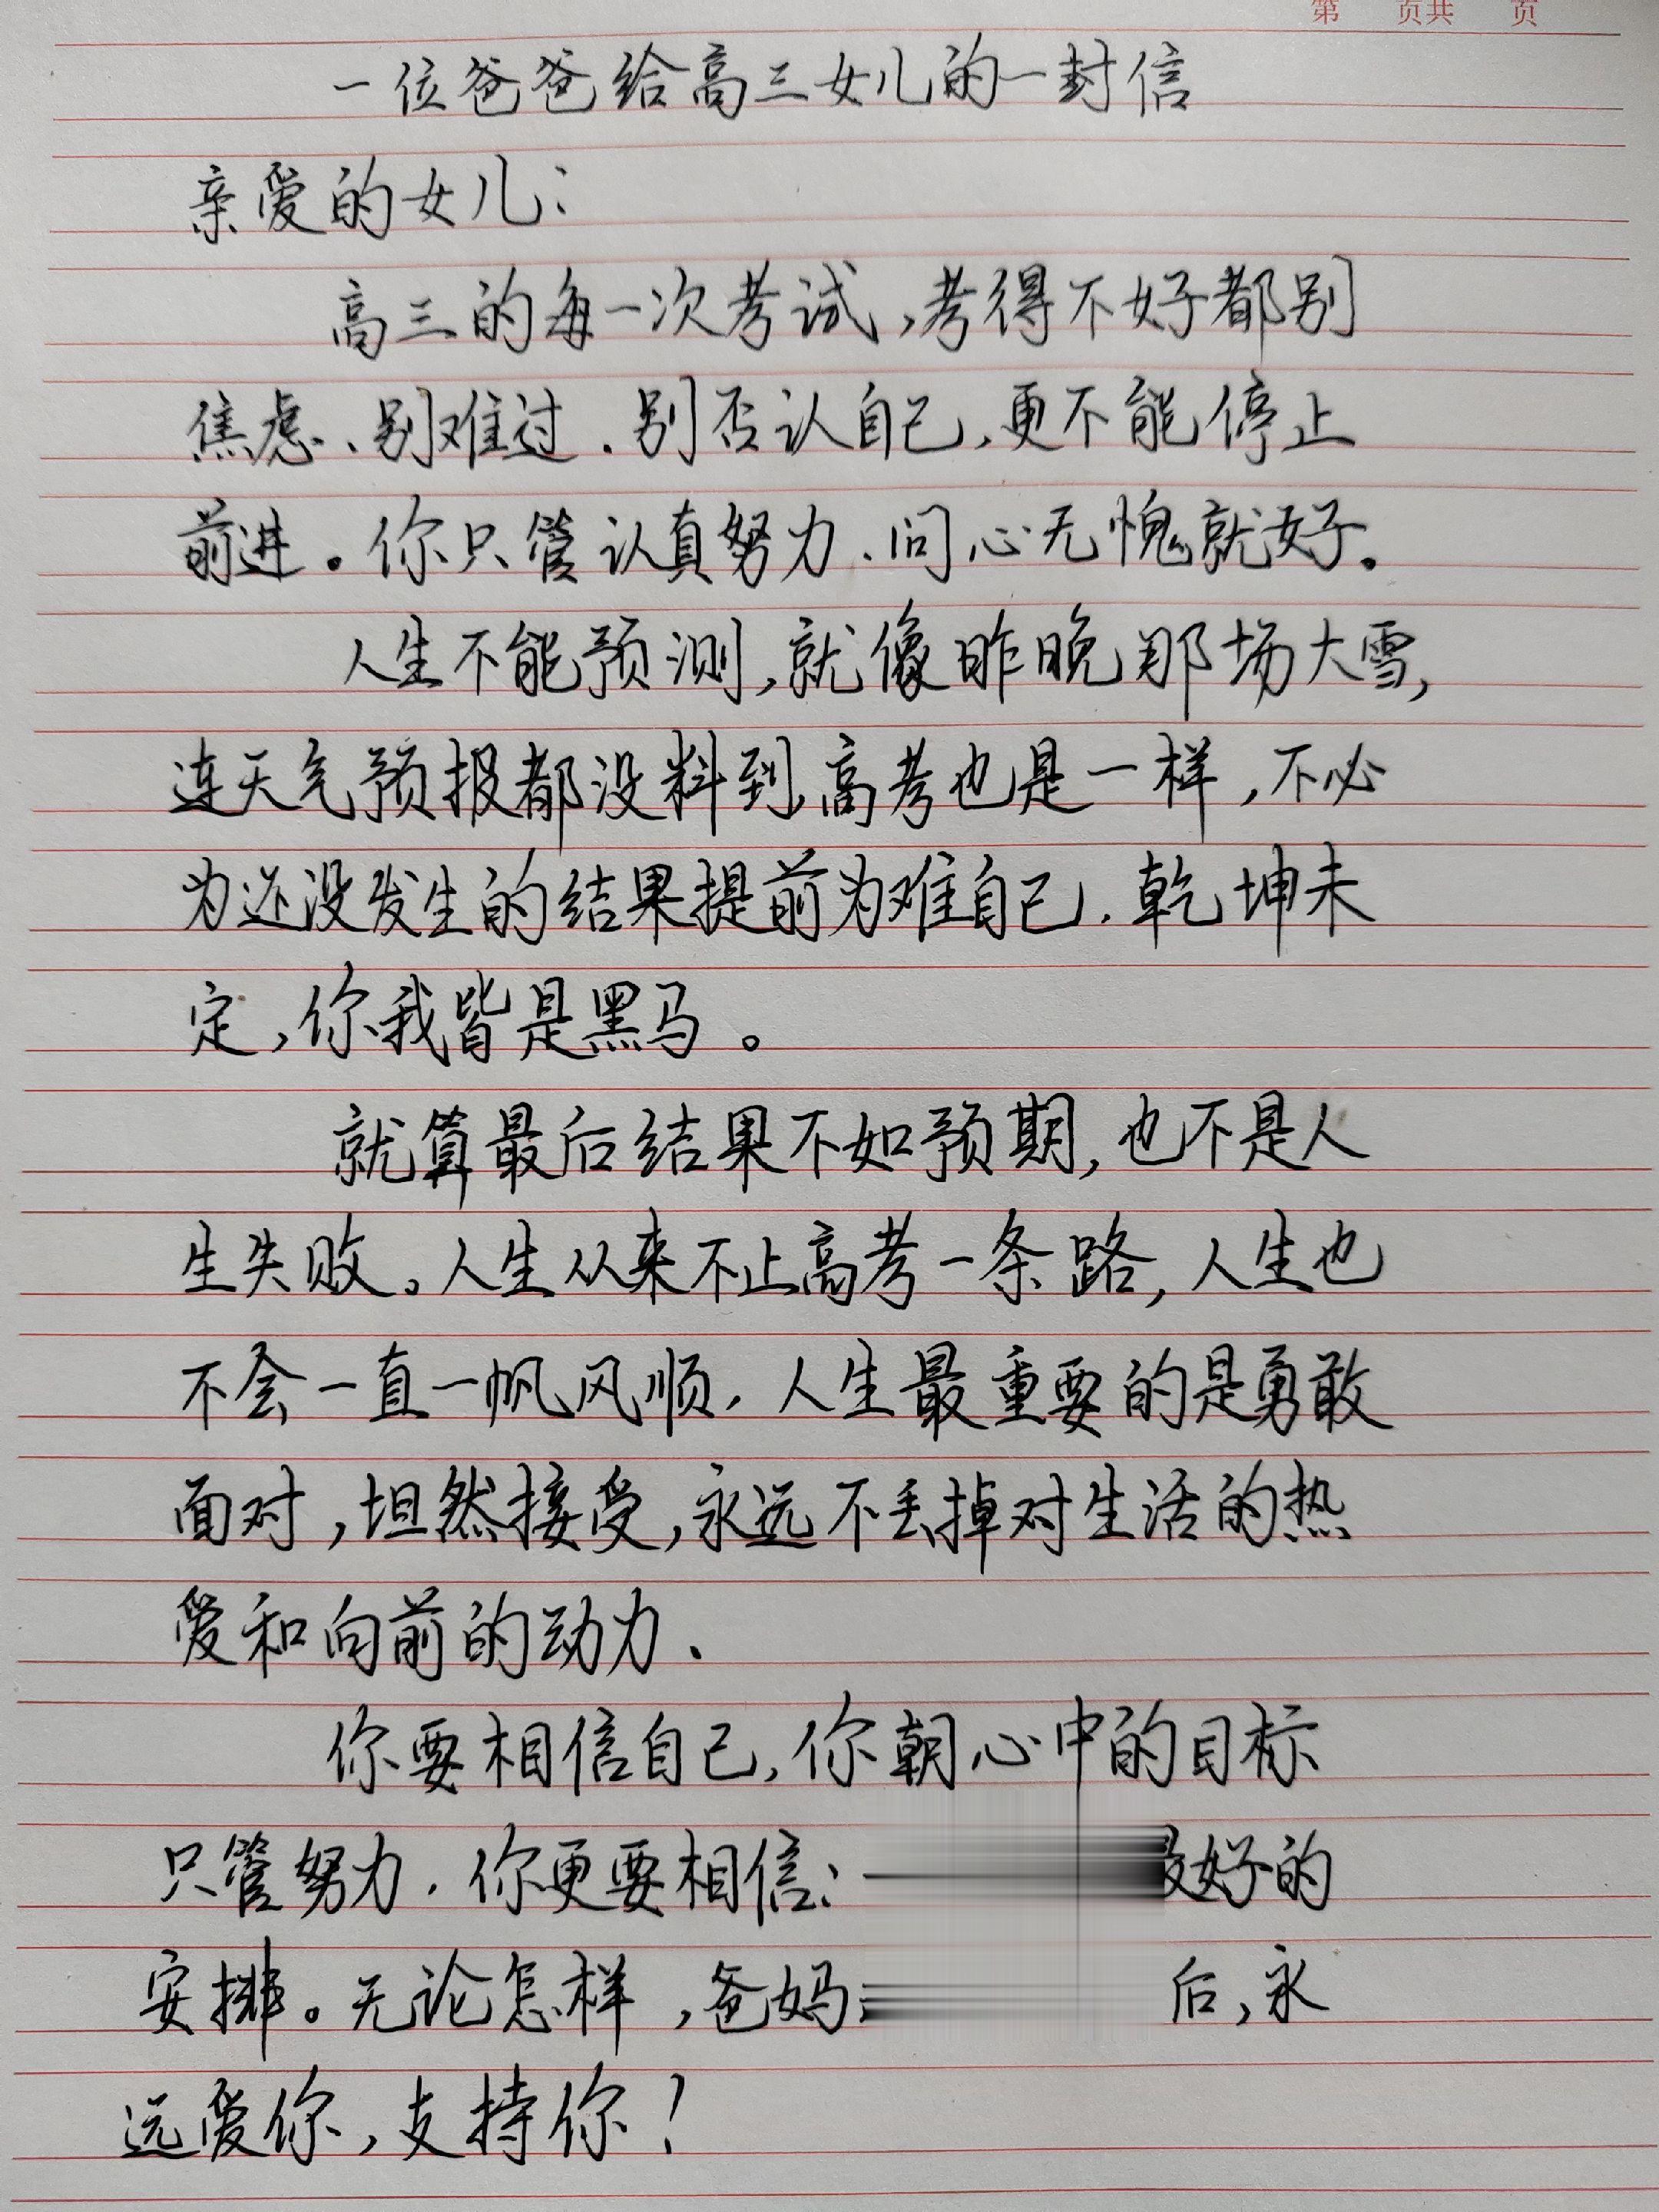 第 页共 页
一位爸爸给高三女儿的一封信
亲爱的女儿：
高三的每一次考试，考得不好都别
焦虑、别难过、别否认自己，更不能停止
前进。你只管认真努力、问心无愧就好。
人生不能预测，就像昨晚那场大雪，
连天气预报都没料到，高考也是一样，不必
为还没发生的结果提前为难自己，乾坤未
定，你我皆是黑马。
就算最后结果不如预期，也不是人
生失败。人生从来不止高考一条路，人生也
不会一直一帆风顺，人生最重要的是勇敢
面对，坦然接受，永远不丢掉对生活的热
爱和向前的动力、
你要相信自己，你朝心中的目标
只管努力，你更要相信： 好的
安排。无论怎样，爸妈 后，永
远爱你，支持你！